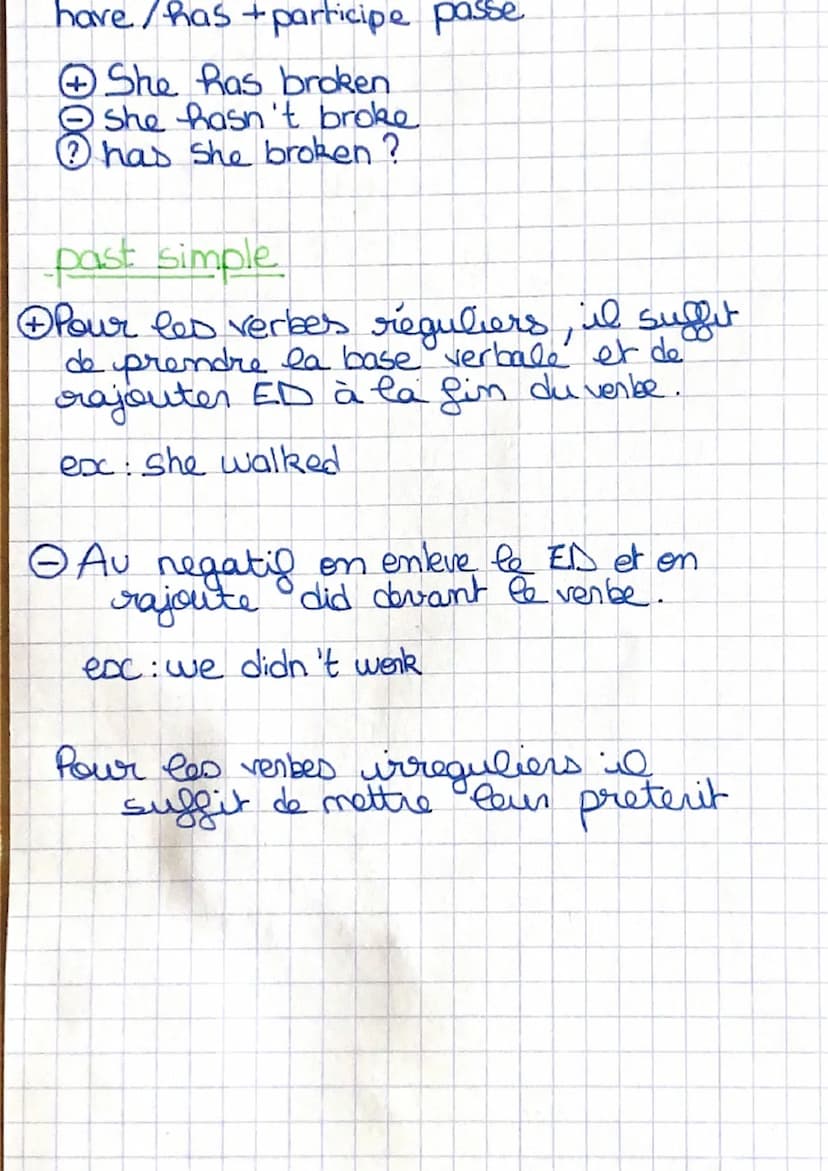 have / has + participe passe
⊕ She has broken
⊖ she hasn't broke
? has she broken ?
past simple
⊕ Pour les verbes réguliers, il suffit
de prendre la base verbale et de
rajouter ED à la fin du verbe.
ex : she walked
⊖ Au negatif on enleve le ED et on
rajoute did devant le verbe.
ex : we didn't work
Pour les verbes irreguliers il
suffit de mettre leur preterit